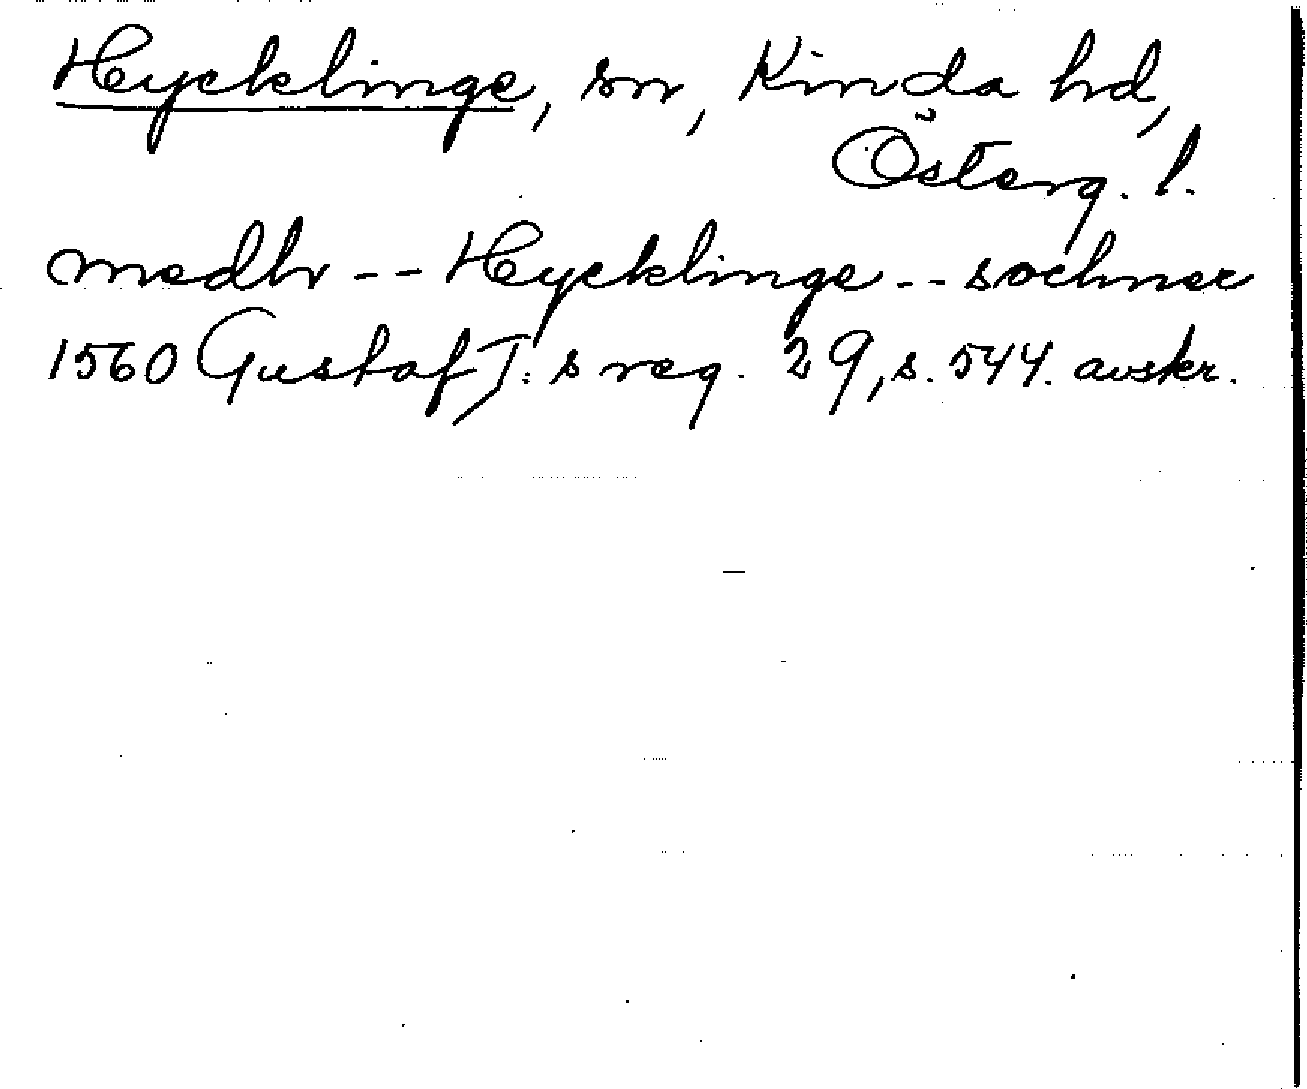 Hycklinge, sn, Kinda hd,
Österg. l.
medhr -- Hycklinge -- sochner
1560 Gustaf I:s reg. 29, s. 544. avskr.